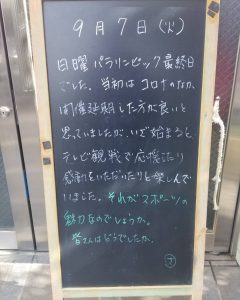 9月7日(火)
日曜パラリンピック最終日
でした。当初はコロナのなか、
開催延期した方が良いと
思っていましたが、いざ始まると
テレビ観戦で応援したり
感動をいただいたりと楽しんで
いました。それがスポーツの
魅力なのでしょうか。
皆さんはどうでしたか。